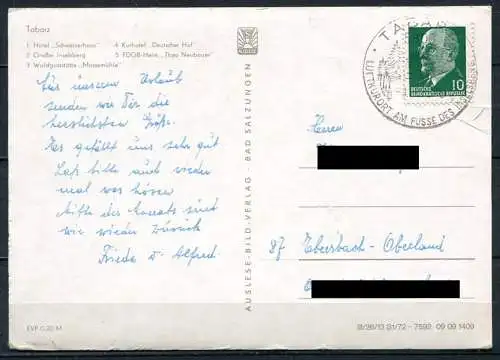 Tabarz
1 Hotel „Schweizerhaus"
2 Großer Inselsberg
3 Waldgaststätte „Massemühle"
4 Kurhotel „Deutscher Hof"
5 FDGB-Heim „Theo Neubauer"
Aus unserem Urlaub
senden wir Dir die
herzlichsten Grüße.
Es gefällt uns sehr gut
Laß bitte auch wieder
mal was hören
Mitte des Monats sind
wir wieder zurück
Frieda u. Alfred.
AUSLESE-BILD-VERLAG · BAD SALZUNGEN
TABARZ
LUFTKURORT AM FUSSE DES INSELSBERG
DEUTSCHE
DEMOKRATISCHE REPUBLIK
10
Herrn
87 Ebersbach-Oberland
EVP 0,20 M
B/26/13 S1/72 - 7592 09 09 1409